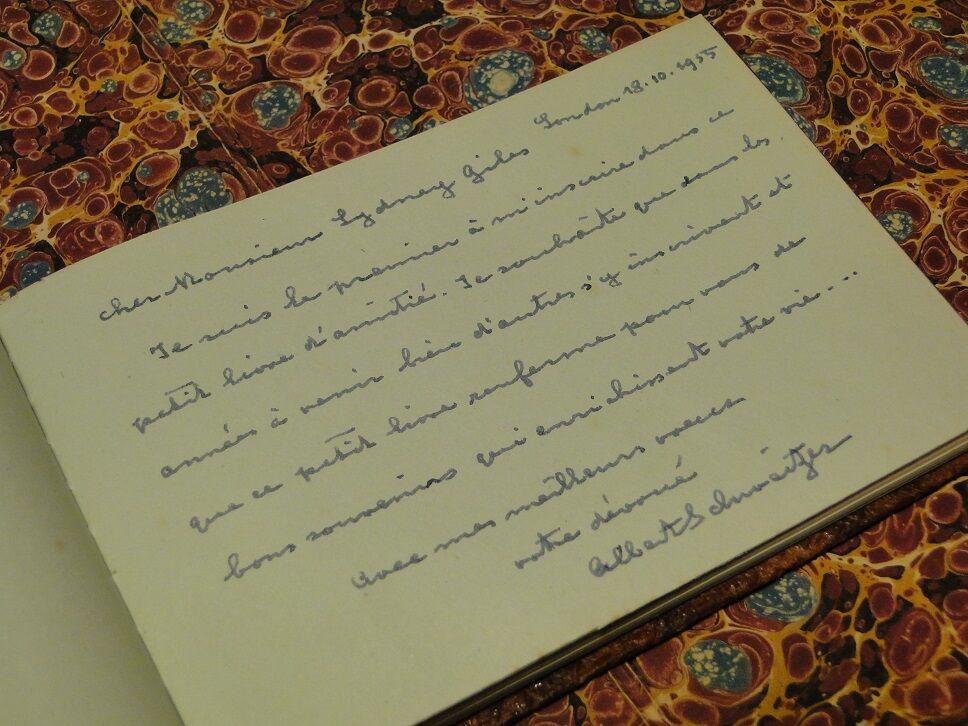 London 18.10.1955
cher Monsieur Sydney Giles
Je suis le premier à m'inscrire dans ce
petit livre d'amitié. Je souhaite que dans les
années à venir bien d'autres s'y inscrivent et
que ce petit livre renferme pour vous de
bons souvenirs qui enrichissent votre vie...
avec mes meilleurs voeux
votre dévoué
Albert Schweitzer